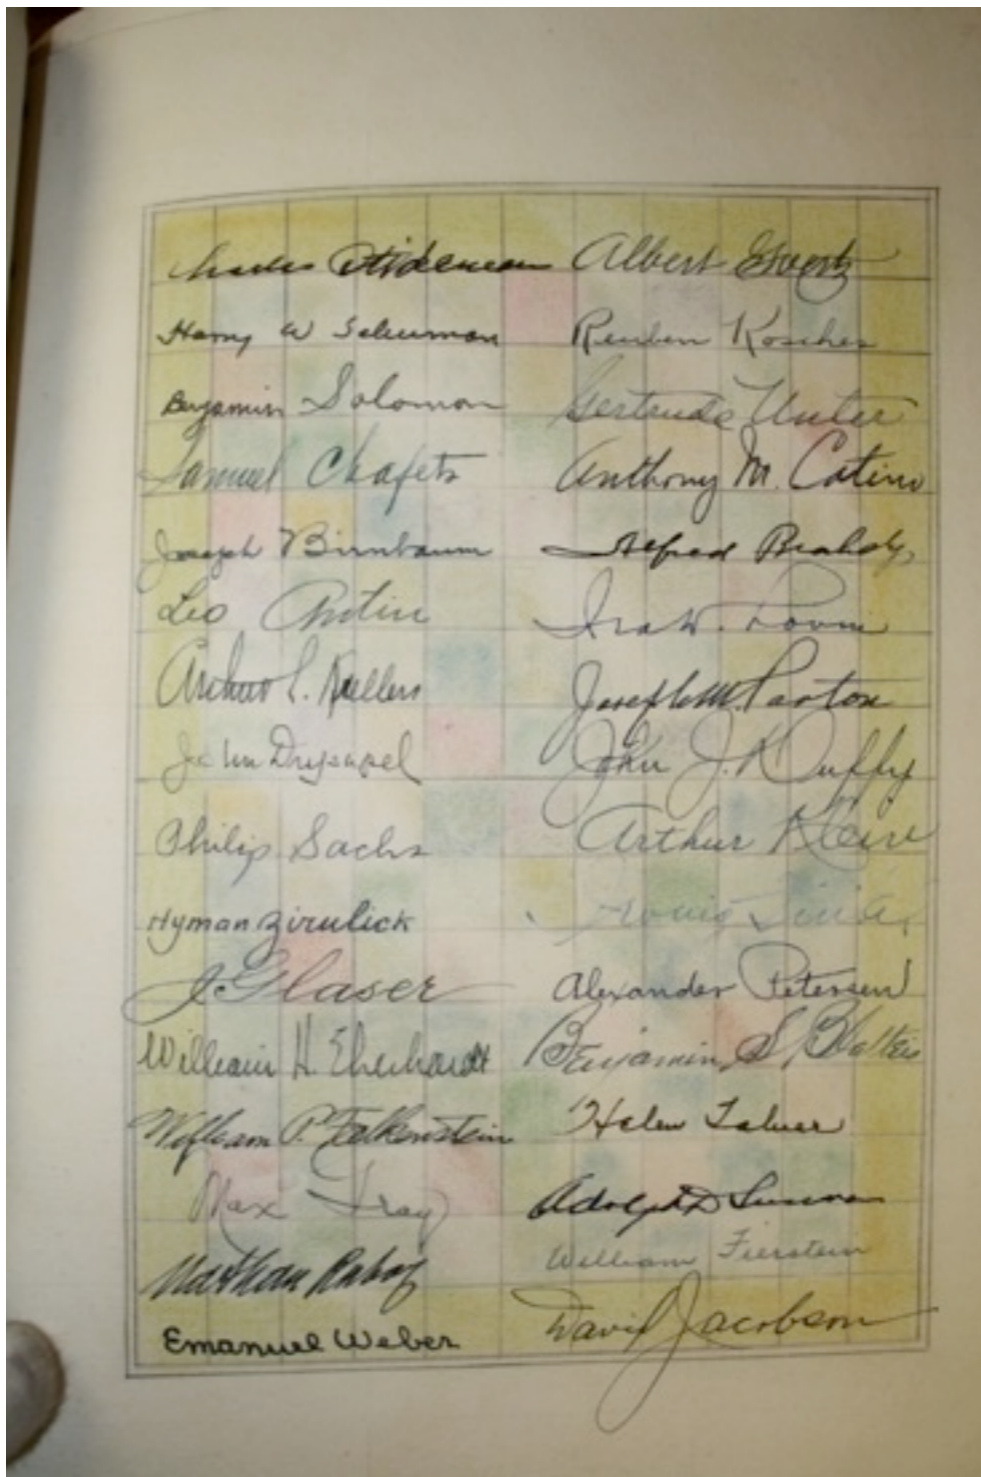 Charles
Harry W Schurman
Benjamin Solomon
Samuel Chafets
Joseph Birnbaum
Leo Antin
Arthur L.
John
Philip Sachs
Hyman Zirulick
J. Glaser
William H. Eberhardt
William P. Falkenstein
Max
Nathan Raboy
Emanuel Weber
Albert
Reuben Koscher
Gertrude Unter
Anthony M. Catino
Alfred
Ira W.
Joseph M. Paxton
John J. Duffy
Arthur Klein
Louis
Alexander Petersen
Benjamin S.
Helen
Adolph
William Fierstein
David Jacobson